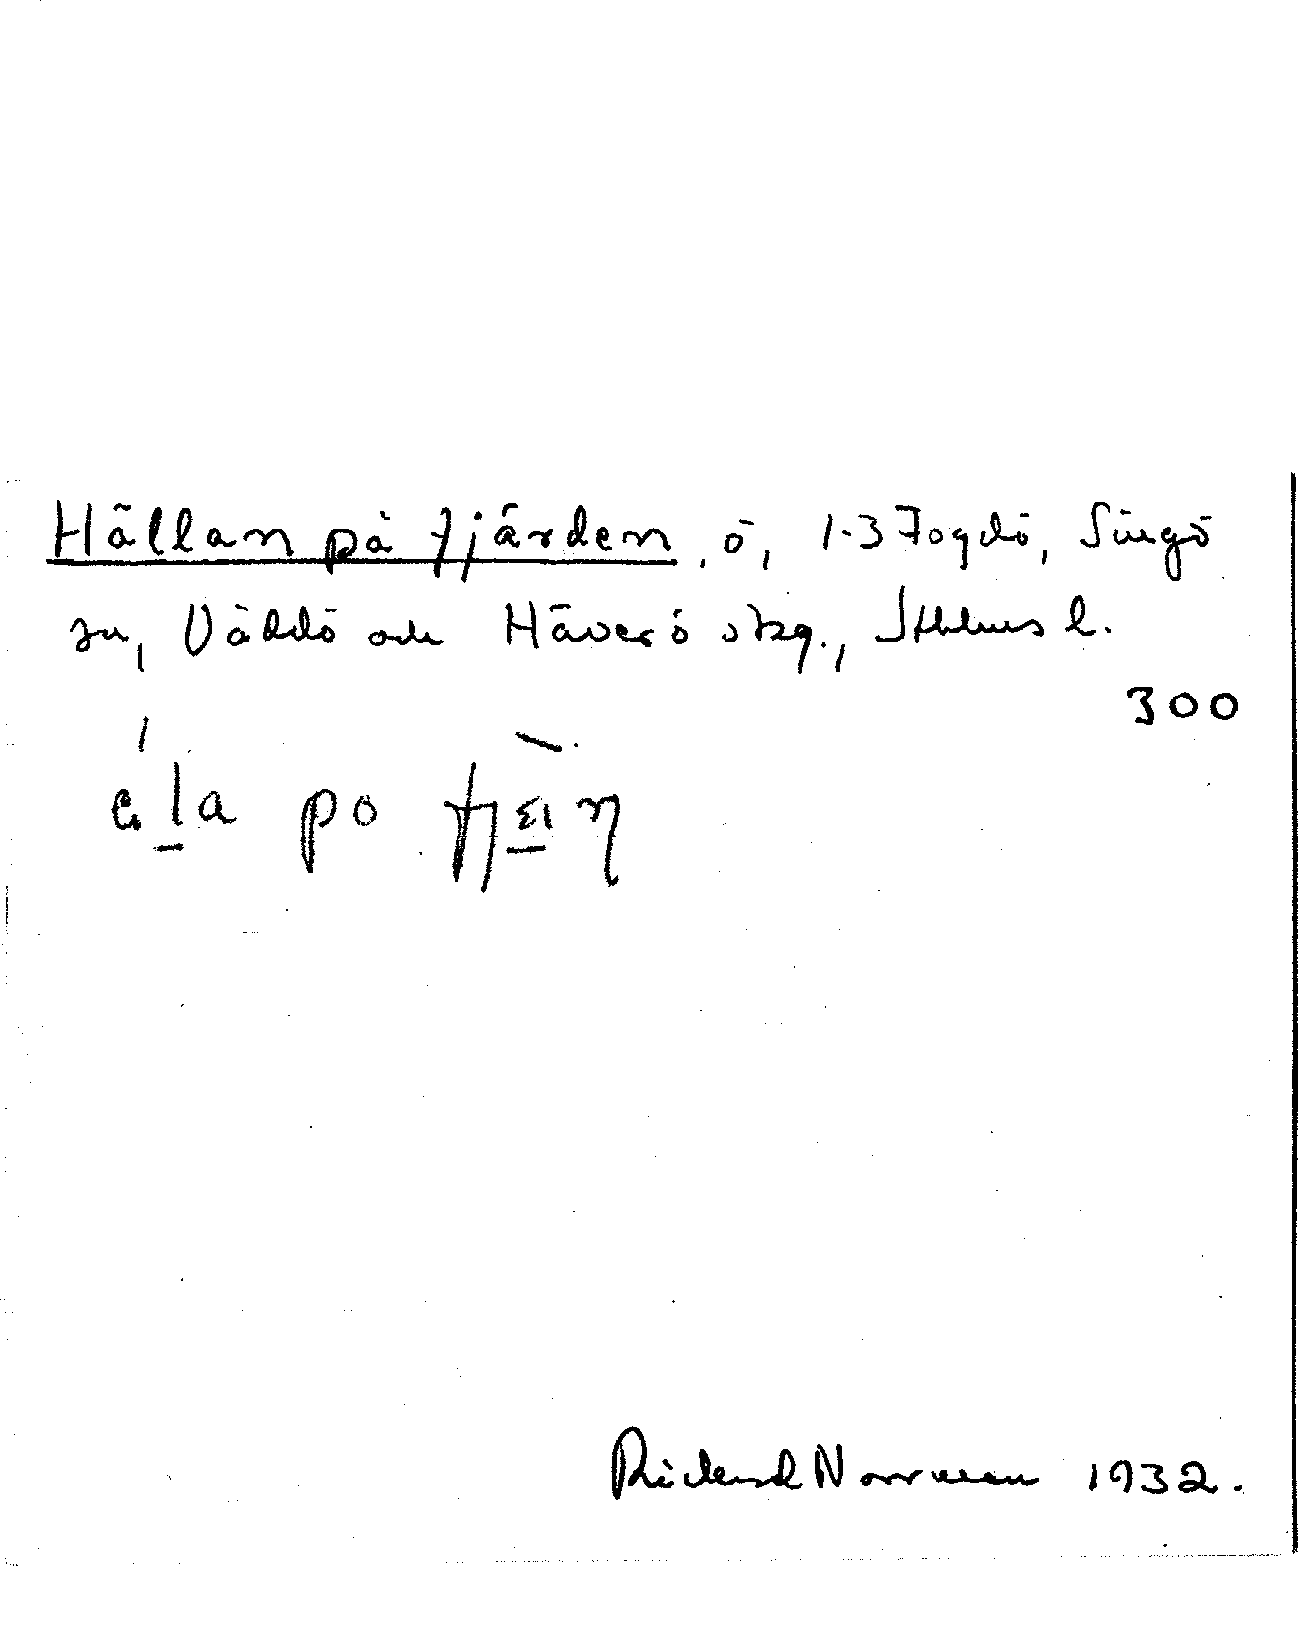 Hällan på fjärden, ö, 1-3 Fogdö, Singö
sn, Väddö och Häverö skg., Sthlms l.
300
ɛ́l̠a po fjɛ̠̀ıη
Rickard Norrman 1932.